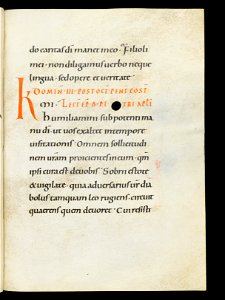 do caritas di manet in eo · Filioli
mei · non diligamus verbo neque
lingua · sed opere et veritate
DOMIN · III · POST OCT PENTECOST
Lec ep b Petri apli
Humiliamini sub potenti ma
nu di · ut vos exaltet in tempore
visitationis · Omnem sollicitudi
nem vram proicientes in eum · qm
ipsi cura est de vobis · Sobrii estote
& vigilate · quia adversarius vr dia
bolus tamquam leo rugiens · circuit
quaerens quem devoret · Cui resisti